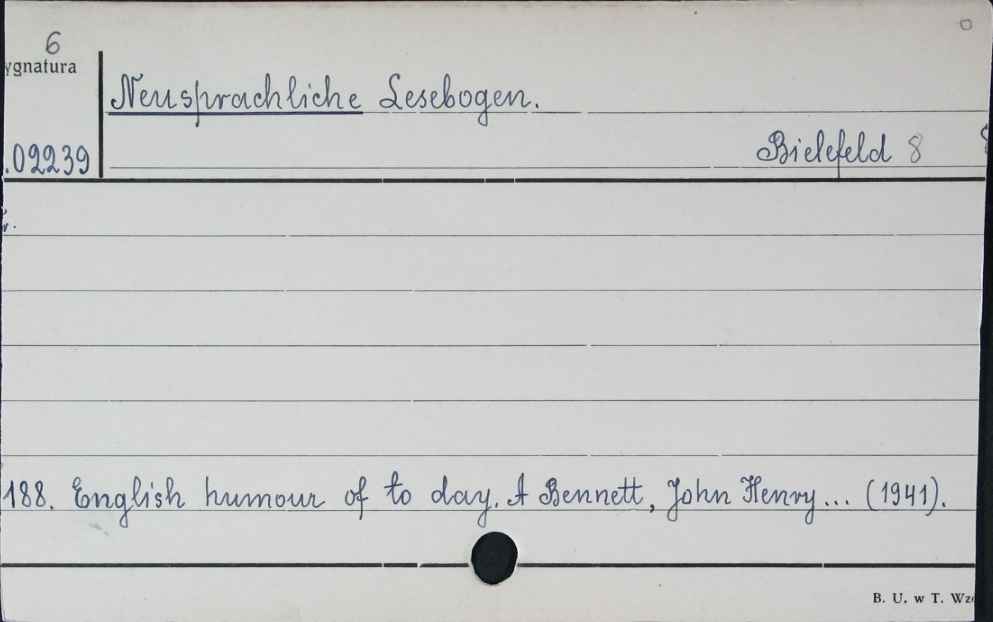 6
ygnatura
Neusprachliche Lesebogen.
.02239
Bielefeld 8
188. English humour of to day. A Bennett, John Henry... (1941).
B. U. w T. Wz